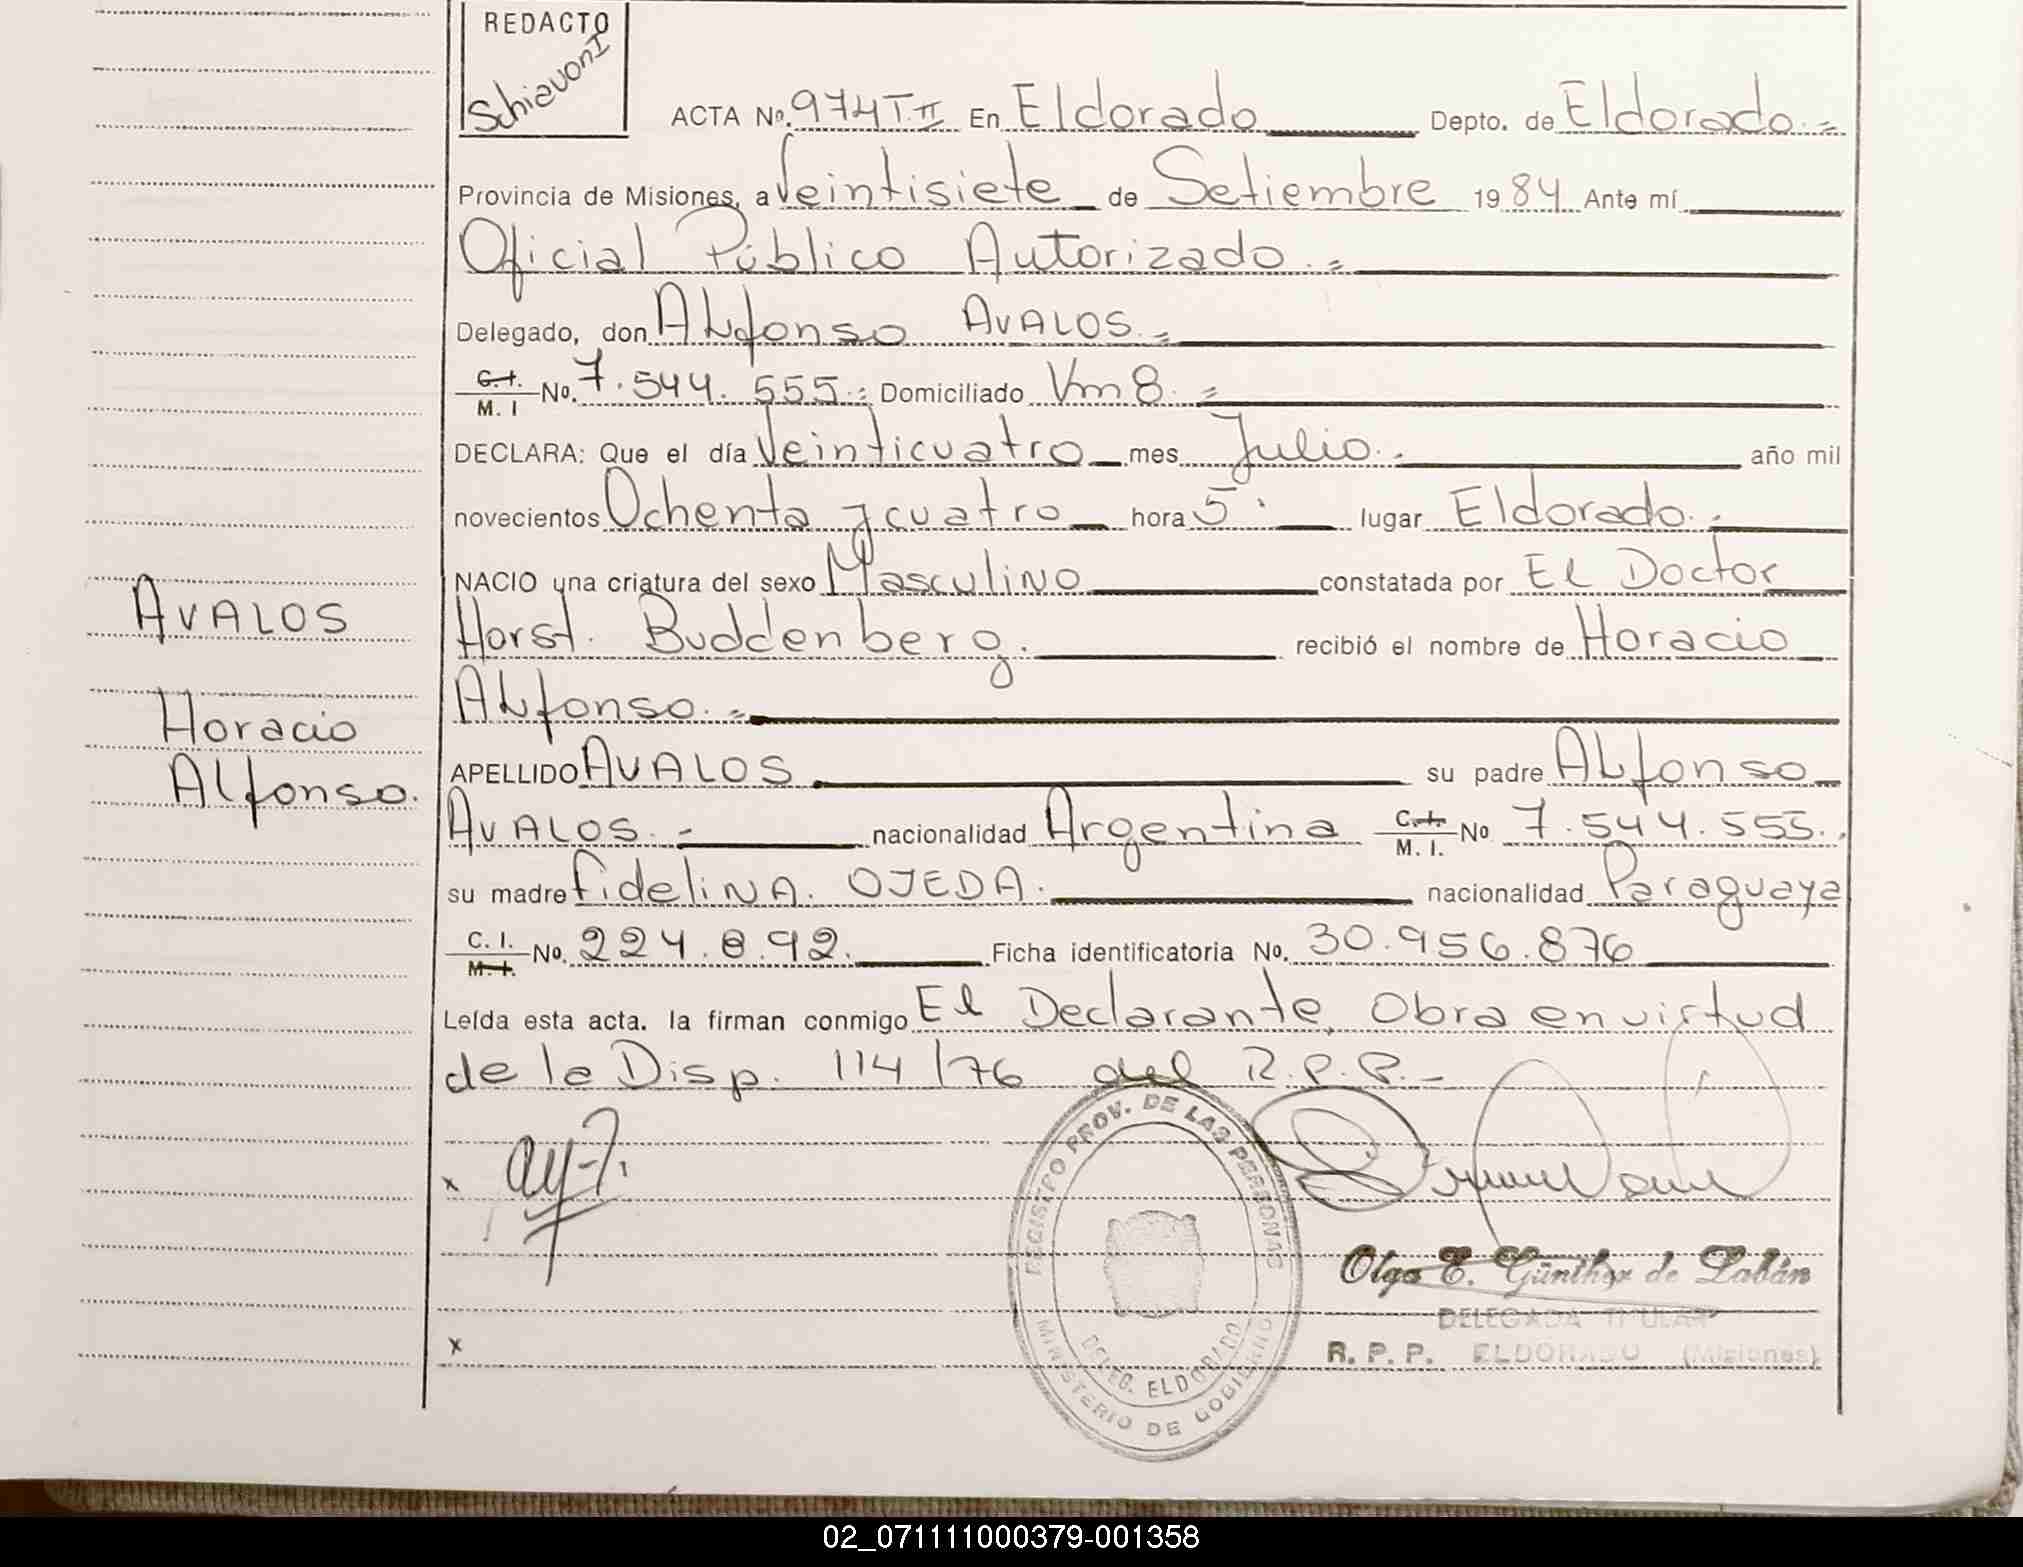 REDACTO
Schiavoni
ACTA No. 974 T. II En Eldorado Depto. de Eldorado.=
Provincia de Misiones, a Veintisiete de Setiembre 1984 Ante mí
Oficial Público Autorizado.=
Delegado, don Alfonso AVALOS.=
C.I. M. I No. 7.544.555.= Domiciliado Vm 8.=
DECLARA: Que el día Veinticuatro mes Julio. año mil
novecientos Ochenta y cuatro hora 5. lugar Eldorado.
NACIO una criatura del sexo Masculino constatada por El Doctor
Horst. Buddenberg. recibió el nombre de Horacio
Alfonso.=
APELLIDO AVALOS su padre Alfonso
AVALOS.- nacionalidad Argentina C.I. M. I. No 7.544.555.
su madre Fidelina. OJEDA. nacionalidad Paraguaya
C. I. M. I. No. 224.892. Ficha identificatoria No. 30.956.876
Leída esta acta. la firman conmigo El Declarante, Obra en virtud
de la Disp. 114/76 del R.P.P.-
AVALOS
Horacio
Alfonso.
x
x
REGISTRO PROV. DE LAS PERSONAS
MINISTERIO DE GOBIERNO
DELEG. ELDORADO
Olga E. Günther de Labán
DELEGADA TITULAR
R. P. P. ELDORADO (Misiones)
02_071111000379-001358